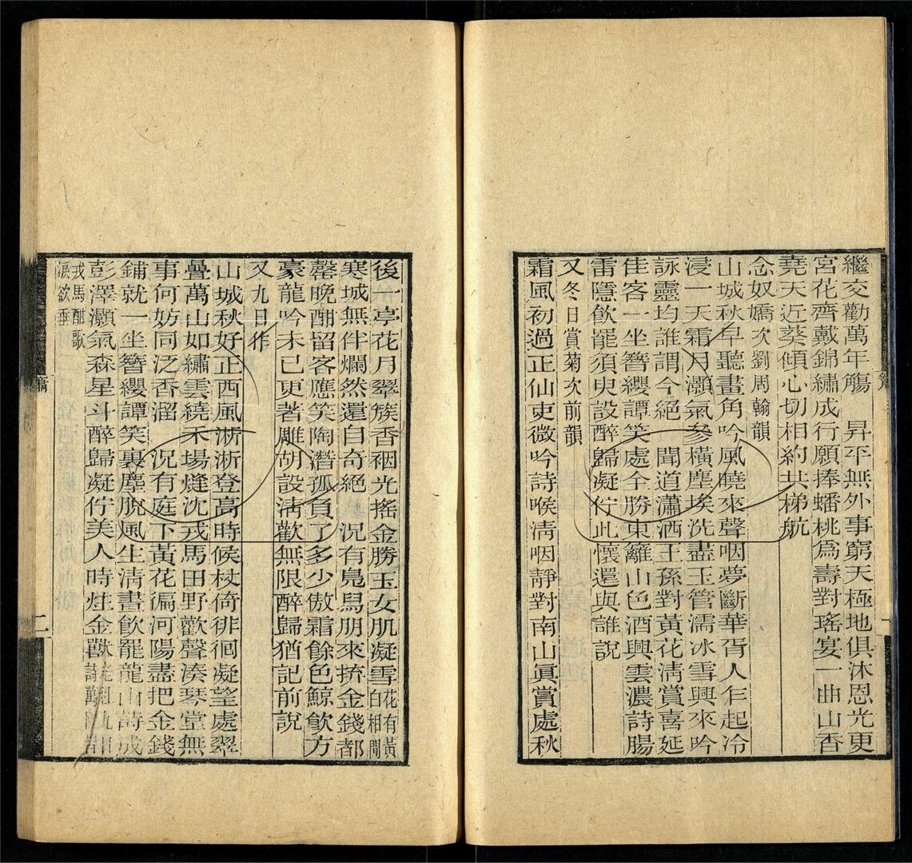 繼交勸萬年觴　昇平無外事窮天極地俱沐恩光更
宮花齊戴錦繡成行願捧蟠桃爲壽對瑤宴一曲山香
堯天近葵傾心切相約共梯航
念奴嬌次劉周翰韻
山城秋早聽畫角吟風曉來聲咽夢斷華胥人乍起冷
浸一天霜月灝氣參橫塵埃洗盡玉管濡冰雪興來吟
詠靈均誰謂今絕　聞道瀟洒王孫對黃花淸賞喜延
佳客一坐簪纓譚笑處全勝東籬山色酒興雲濃詩腸
雷隱飮罷須史設醉歸凝佇此懷還與誰說
又冬日賞菊次前韻
霜風初過正仙吏微吟詩喉淸咽靜對南山眞賞處秋
後一亭花月翠蔟香裀光搖金勝玉女肌凝雪花有黃白相間
寒城無伴爛然還自奇絕　況有鳧舃朋來㨗金錢都
罄晚酣留客應笑陶潛孤負了多少傲霜餘色鯨飮方
豪龍吟未已更著雕胡設淸歡無限醉歸猶記前說
又九日作
山城秋好正西風淅淅登高時候杖倚徘徊凝望處翠
疊萬山如繡雲繞禾場烽沈戎馬田野歡聲湊琴堂無
事何妨同泛香溜　況有庭下黃花徧河陽盡把金錢
鋪就一坐簪纓譚笑裏塵脫風生淸晝飮罷龍山詩成
彭澤灝氣森星斗醉歸凝佇美人時炷金獸
戎馬酣歌